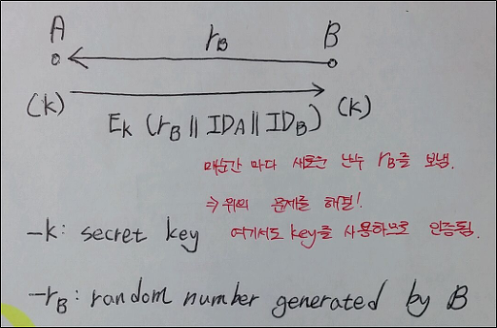 A B
r_B
(k) (k)
E_k (r_B || ID_A || ID_B)
매순간 마다 새로운 난수 r_B를 보냄.
⇒ 위의 문제를 해결!
-k: secret key 여기서도 key를 사용하므로 인증됨.
-r_B: random number generated by B